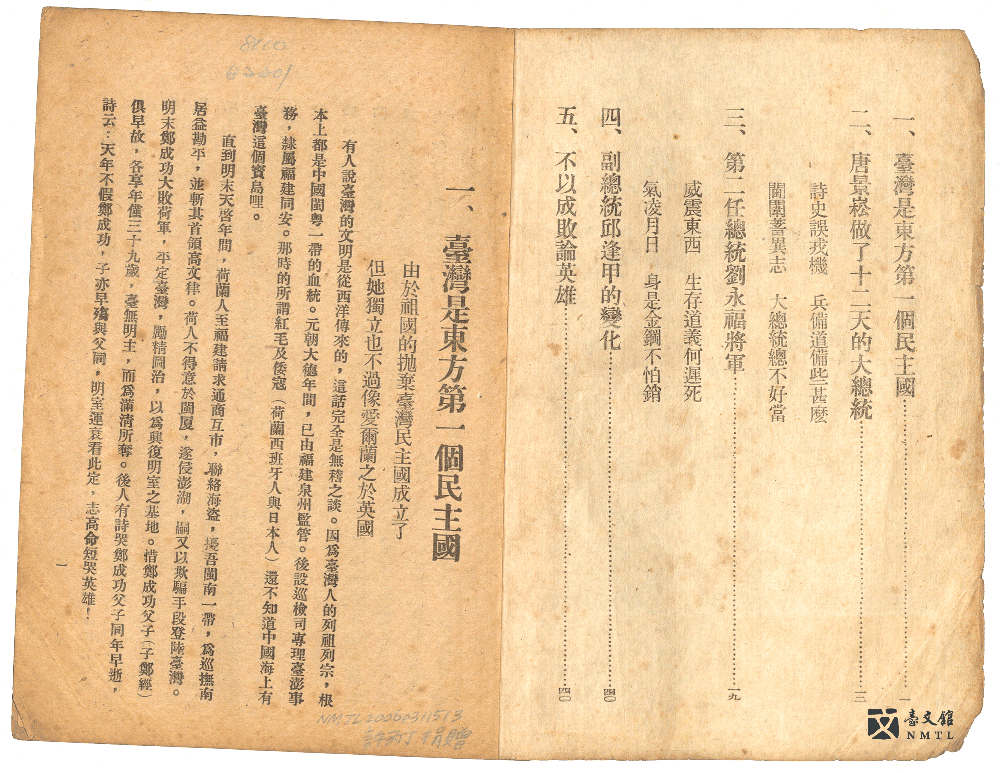 一、臺灣是東方第一個民主國…………一
二、唐景崧做了十二天的大總統…………三
詩史誤戎機　兵備道備些甚麽
闈闈蓄異志　大總統總不好當
三、第二任總統劉永福將軍…………一九
威震東西　生存道義何遲死
氣凌月日　身是金鋼不怕銷
四、副總統邱逢甲的變化…………四〇
五、不以成敗論英雄…………四〇
一、臺灣是東方第一個民主國
由於祖國的拋棄臺灣民主國成立了
但她獨立也不過像愛爾蘭之於英國
有人說臺灣的文明是從西洋傳來的，這話完全是無稽之談。因爲臺灣人的列祖列宗，根
本上都是中國閩粤一帶的血統。元朝大德年間，已由福建泉州監管。後設巡檢司專理臺澎事
務，隸屬福建同安。那時的所謂紅毛及倭寇（荷蘭西班牙人與日本人）還不知道中國海上有
臺灣這個寶島哩。
直到明末天啓年間，荷蘭人至福建請求通商互市，聯絡海盜，擾吾閩南一帶，爲巡撫南
居益勘平，並斬其首領高文律。荷人不得意於閩厦，遂侵澎湖，嗣又以欺騙手段登陸臺灣。
明末鄭成功大敗荷軍，平定臺灣，勵精圖治，以爲興復明室之基地。惜鄭成功父子（子鄭經）
俱早故，各享年僅三十九歲，臺無明主，而爲滿清所奪。後人有詩哭鄭成功父子同年早逝，
詩云：天年不假鄭成功，子亦早殤與父同，明室運衰看此定，志高命短哭英雄！
一
8100
NMTL20200311513
許丙丁捐贈
臺文館
NMTL